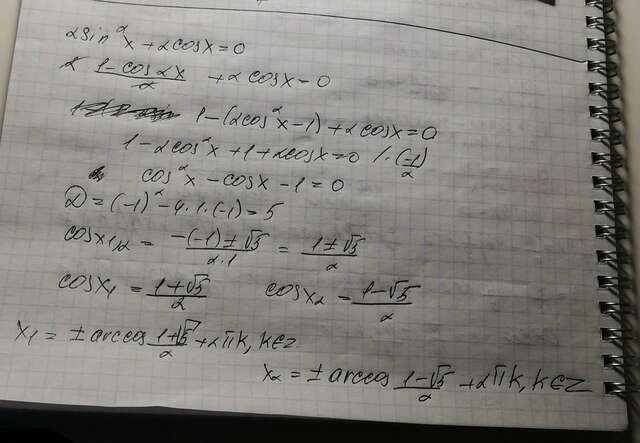 2sin²x+2cosx=0
2 (1-cos2x)/2 +2cosx=0
1-(2cos²x-1)+2cosx=0
1-2cos²x+1+2cosx=0 |·(-1/2)
cos²x-cosx-1=0
D=(-1)²-4·1·(-1)=5
cosx₁,₂ = (-(-1)±√5)/(2·1) = (1±√5)/2
cosx₁ = (1+√5)/2 cosx₂ = (1-√5)/2
x₁ = ±arccos (1+√5)/2 +2πk, k∈z
x₂ = ±arccos (1-√5)/2 +2πk, k∈z